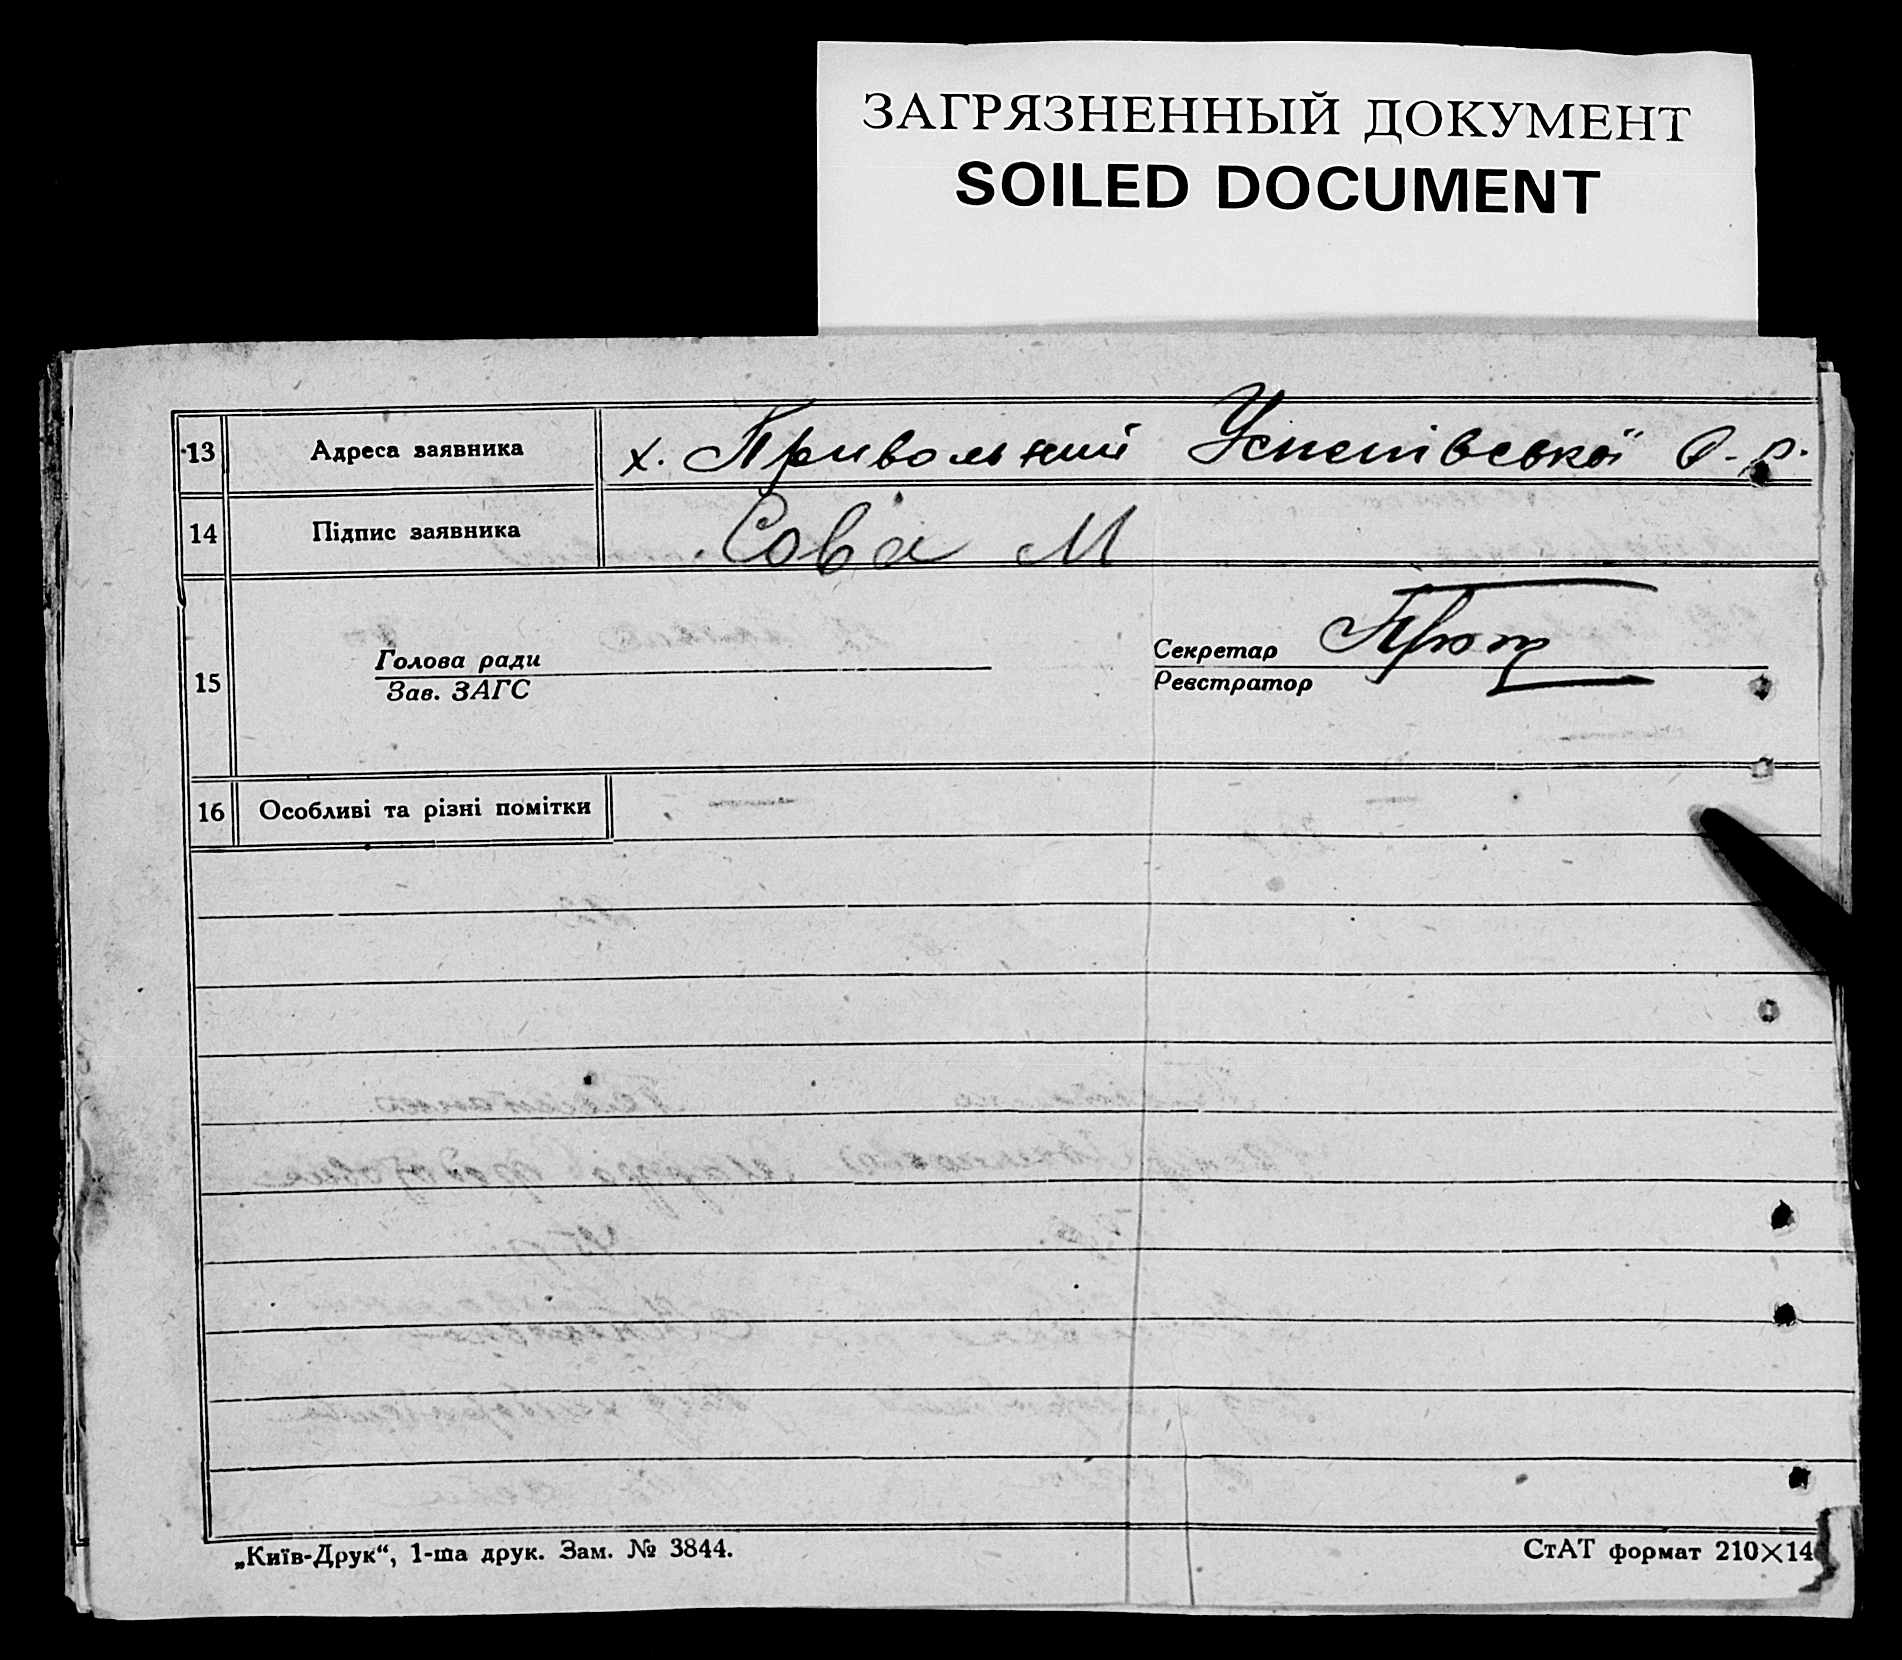 ЗАГРЯЗНЕННЫЙ ДОКУМЕНТ
SOILED DOCUMENT
13 Адреса заявника х. Привольний Успенівської с.р.
14 Підпис заявника Сова М
15 Голова ради Секретар
Зав. ЗАГС Реєстратор
16 Особливі та різні помітки
„Київ-Друк“, 1-ша друк. Зам. № 3844. СтАТ формат 210×14